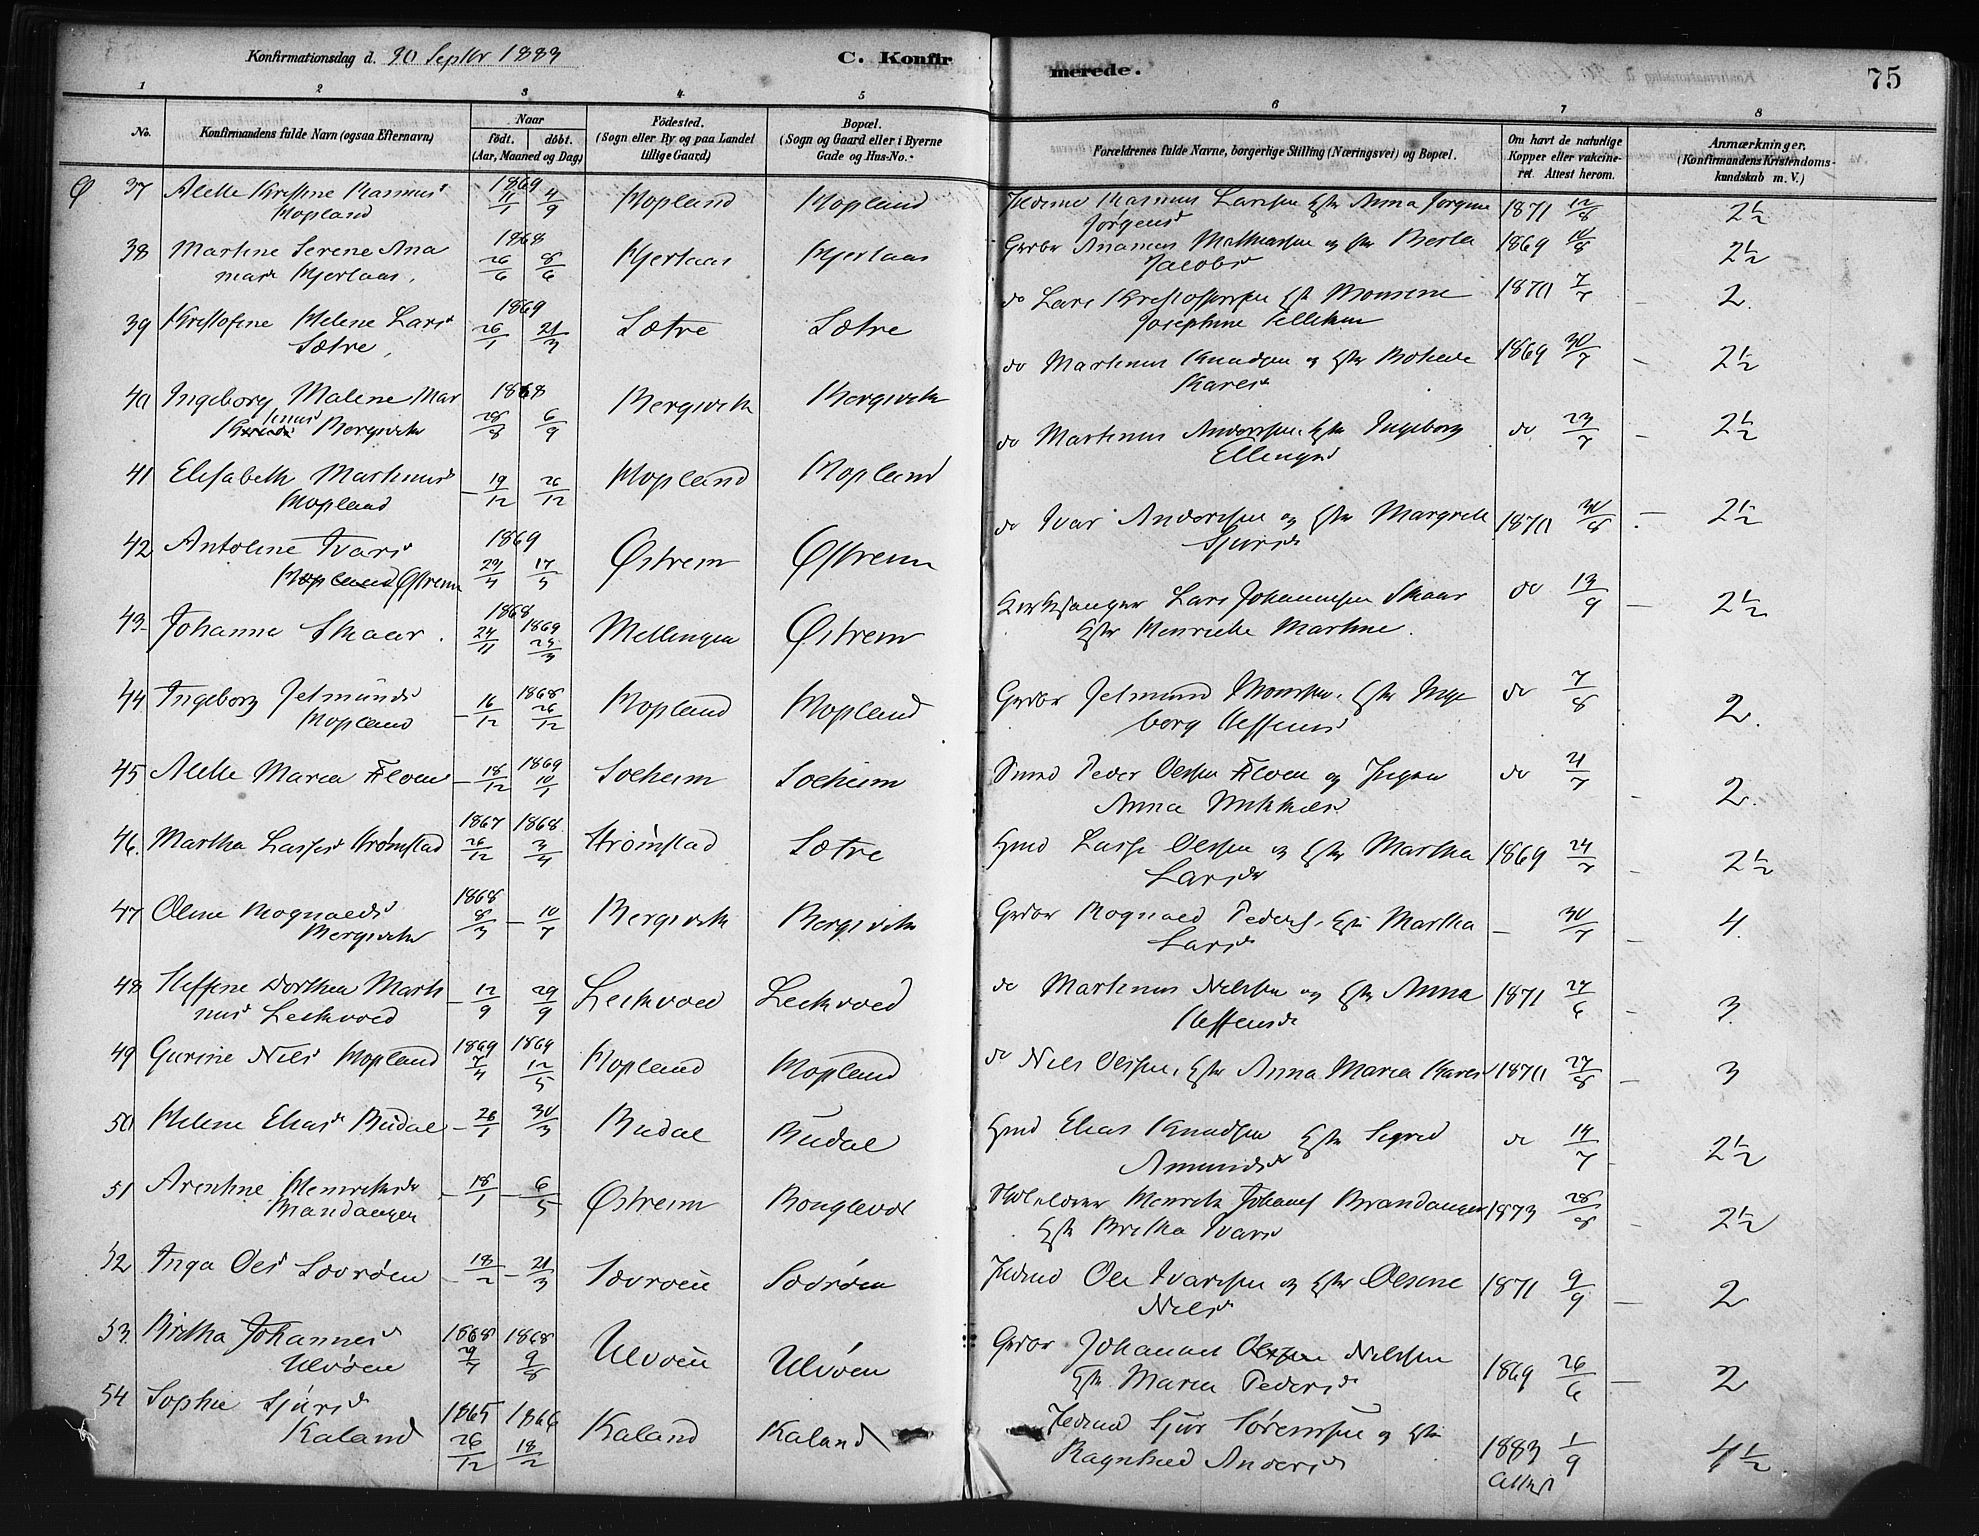 Konfirmationsdag d. 30 Septbr 1883
C. Konfirmerede.
75
1 2 3 4 5 6 7 8
No.
Konfirmandens fulde Navn (ogsaa Efternavn)
Naar
födt. döbt.
(Aar, Maaned og Dag)
Födested.
(Sogn eller By og paa Landet
tillige Gaard)
Bopæl.
(Sogn og Gaard eller i Byerne
Gade og Hus-No.)
Forældrenes fulde Navne, borgerlige Stilling (Næringsvei) og Bopæl.
Om havt de naturlige
Kopper eller vakcine-
ret. Attest herom.
Anmærkninger.
(Konfirmandens Kristendoms-
kundskab m. V.)
37 Alette Kristine Rasmusd Hopland 1869 4/9 Hopland Hopland Rasmus Larssen Hstr Anna Jørgine Jørgensd 1871 12/8 2½
38 Martine Serene Ananiasd Hjertaas 1868 26/6 8/6 Hjertaas Hjertaas Grdbr Ananias Mathiassen og Hstr Berta Jacobsd 1869 2½
39 Kristofine Helene Larsd Sætre 1869 26/1 21/3 Sætre Sætre do Lars Kristoffersen Hstr Monsine Josephine 1870 2
40 Ingeborg Malene Martinusd Bergsvik 1868 28/8 6/9 Bergsvik Bergsvik do Martinus Knudsen og Hstr 1869 30/7 2½
41 Elisabeth Martinusd Hopland - 19/12 26/12 Hopland Hopland do Martinus Anderssen Hstr Ingeborg Ellingsd do 23/7 2½
42 Antoline Ivarsd Østrem 1869 17/5 Østrem Østrem do Ivar Anderssen og Hstr Margrete Sjursd 1870 30/8 2½
43 Johanna Skaar 1868 24/11 1869 Mellingen Østrem Kirkesanger Lars Johannessen Skaar Hstr Henrikke Martine do 13/9 2½
44 Ingeborg Jetmundsd Hopland - 16/12 1868 26/12 Hopland Hopland Grdbr Jetmund Monssen Hstr Ingeborg Steffensd do 7/8 2
45 Alette Maria Floen - 18/12 1869 10/1 Solheim Solheim Smed Peder Olssen Floen og Anna Mikkelsd do 21/7 2
46 Martha Lassesd Strømstad 1867 26/12 1868 Strømstad Sætre Hmd Lasse Olssen og Hstr Martha Larsd 1869 24/7 2½
47 Oline Rognaldsd Bergsvik 1868 8/3 - 10/7 Bergsvik Bergsvik Grdbr Rognald Peders. Hstr Martha Larsd - 30/7 4
48 Steffine Dorthea Martinusd Leikvold - 12/9 29/9 Leikvold Leikvold do Martinus Nilssen og Hstr Anna Steffensd 1871 27/6 3
49 Gurine Nilsd Hopland 1869 7/4 1869 12/5 Hopland Hopland do Nils Olssen, Hstr Anna Maria 1870 27/8 3
50 Helene Eliasd Budal - 26/1 30/3 Budal Budal Hmd Elias Knudsen Hstr Sigrid Amundsd do 14/7 2½
51 Arentine Henriksd Brandanger - 18/1 - 6/5 Østrem Skolelærer Henrik Johans Brandanger Hstr Britha Ivarsd 1873 28/8 2½
52 Inga Olsd Sovrøen - 18/2 - 21/3 Sovrøen Sovrøen Ole Ivarssen og Hstr Olsine Nilsd 1871 9/9 2
53 Britha Johannesd Ulvøen 1868 29/7 1868 9/8 Ulvøen Ulvøen Grdbr Johannes Nilssen Hstr Maria Pedersd 1869 26/6 2
54 Sophie Sjursd Kaland 1865 26/12 1866 18/2 Kaland Kaland Sjur Sørenssen og Hstr Ragnhild Andersd 1883 1/9 Attest 4½